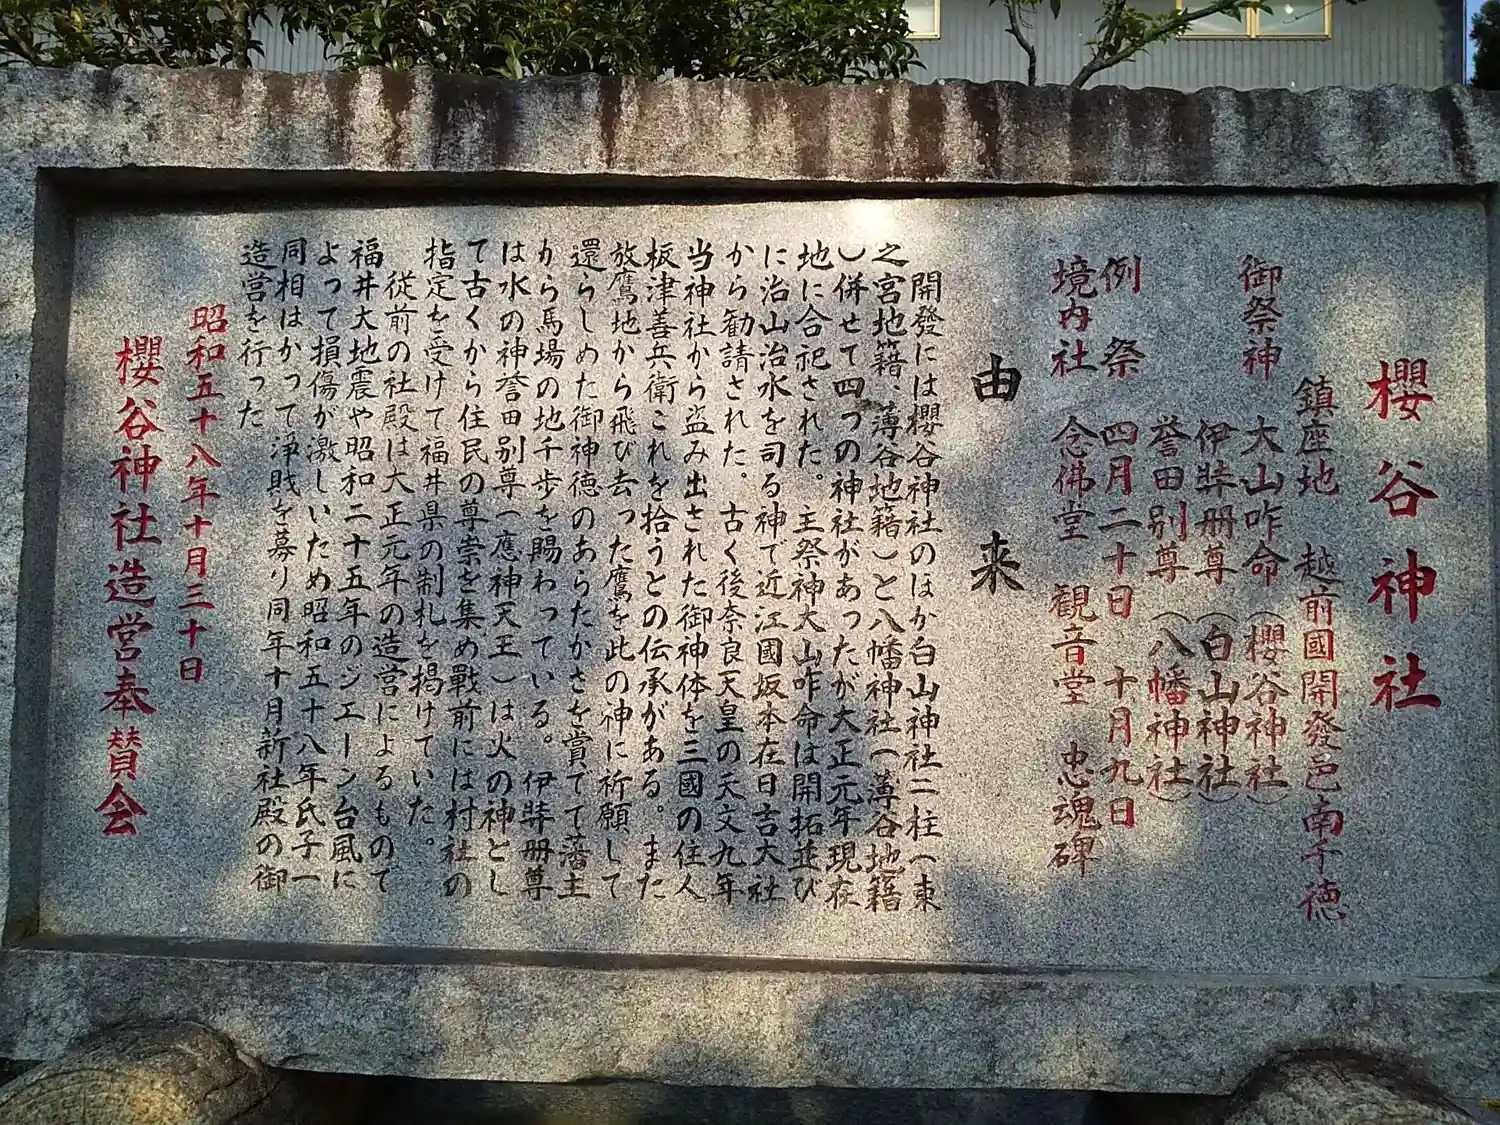 櫻谷神社
鎮座地 越前國開發邑南千徳
御祭神 大山咋命（櫻谷神社）
伊弉册尊（白山神社）
誉田別尊（八幡神社）
例祭 四月二十日 十月九日
境内社 念佛堂 観音堂 忠魂碑
由来
開發には櫻谷神社のほか白山神社二柱（東
之宮地籍、薄谷地籍）と八幡神社（薄谷地籍
）併せて四つの神社があったが大正元年現在
地に合祀された。主祭神大山咋命は開拓並び
に治山治水を司る神で近江國坂本在日吉大社
から勧請された。古く後奈良天皇の天文九年
当神社から盗み出された御神体を三國の住人
板津善兵衛これを拾うとの伝承がある。また
放鷹地から飛び去った鷹を此の神に祈願して
還らしめた御神徳のあらたかさを賞でて藩主
から馬場の地千歩を賜わっている。伊弉册尊
は水の神誉田別尊（應神天王）は火の神とし
て古くから住民の尊崇を集め戰前には村社の
指定を受けて福井県の制札を掲げていた。
従前の社殿は大正元年の造営によるもので
福井大地震や昭和二十五年のジエーン台風に
よって損傷が激しいため昭和五十八年氏子一
同相はかって浄財を募り同年十月新社殿の御
造営を行った。
昭和五十八年十月三十日
櫻谷神社造営奉賛会